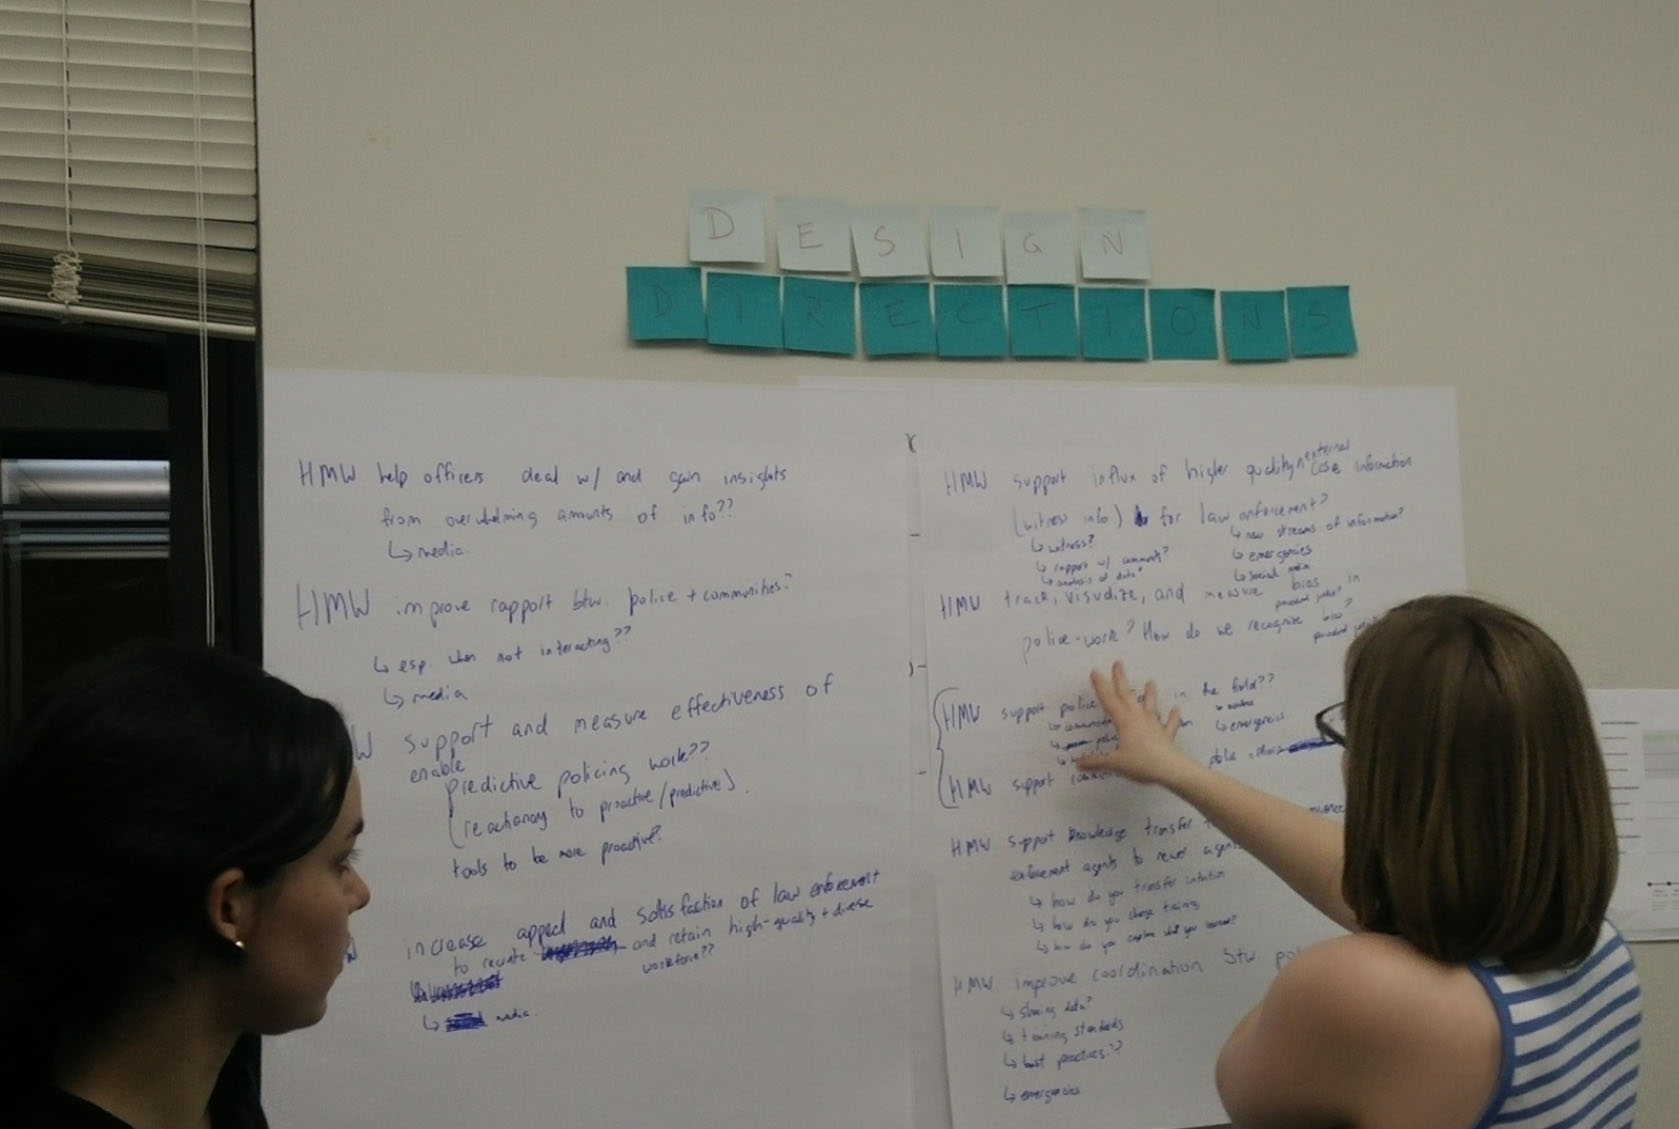 DESIGN
DIRECTIONS
HMW help officers deal w/ and gain insights
from overwhelming amounts of info??
↳ media.
HMW improve rapport btw. police + communities?
↳ esp when not interacting??
↳ media
W support and measure effectiveness of
enable
predictive policing work??
(reactionary to proactive/predictive).
tools to be more proactive?
increase appeal and satisfaction of law enforcement
to recruite and retain high-quality + diverse
workforce??
↳ media.
HMW support influx of higher quality external case information
(witness info) for law enforcement?
↳ witness?
↳ rapport w/ community?
↳ analysis of data*
↳ new streams of information?
↳ emergencies
↳ social media
HMW track, visualize, and measure bias in
police-work? How do we recognize bias?
HMW support police in the field??
↳ emergencies
HMW support
HMW support knowledge transfer
enforcement agents to newer agents
↳ how do you transfer intuition
↳ how do you change training
↳ how do you capture what you learned?
HMW improve coordination btw pol
↳ sharing data?
↳ training standards
↳ best practices??
↳ emergencies